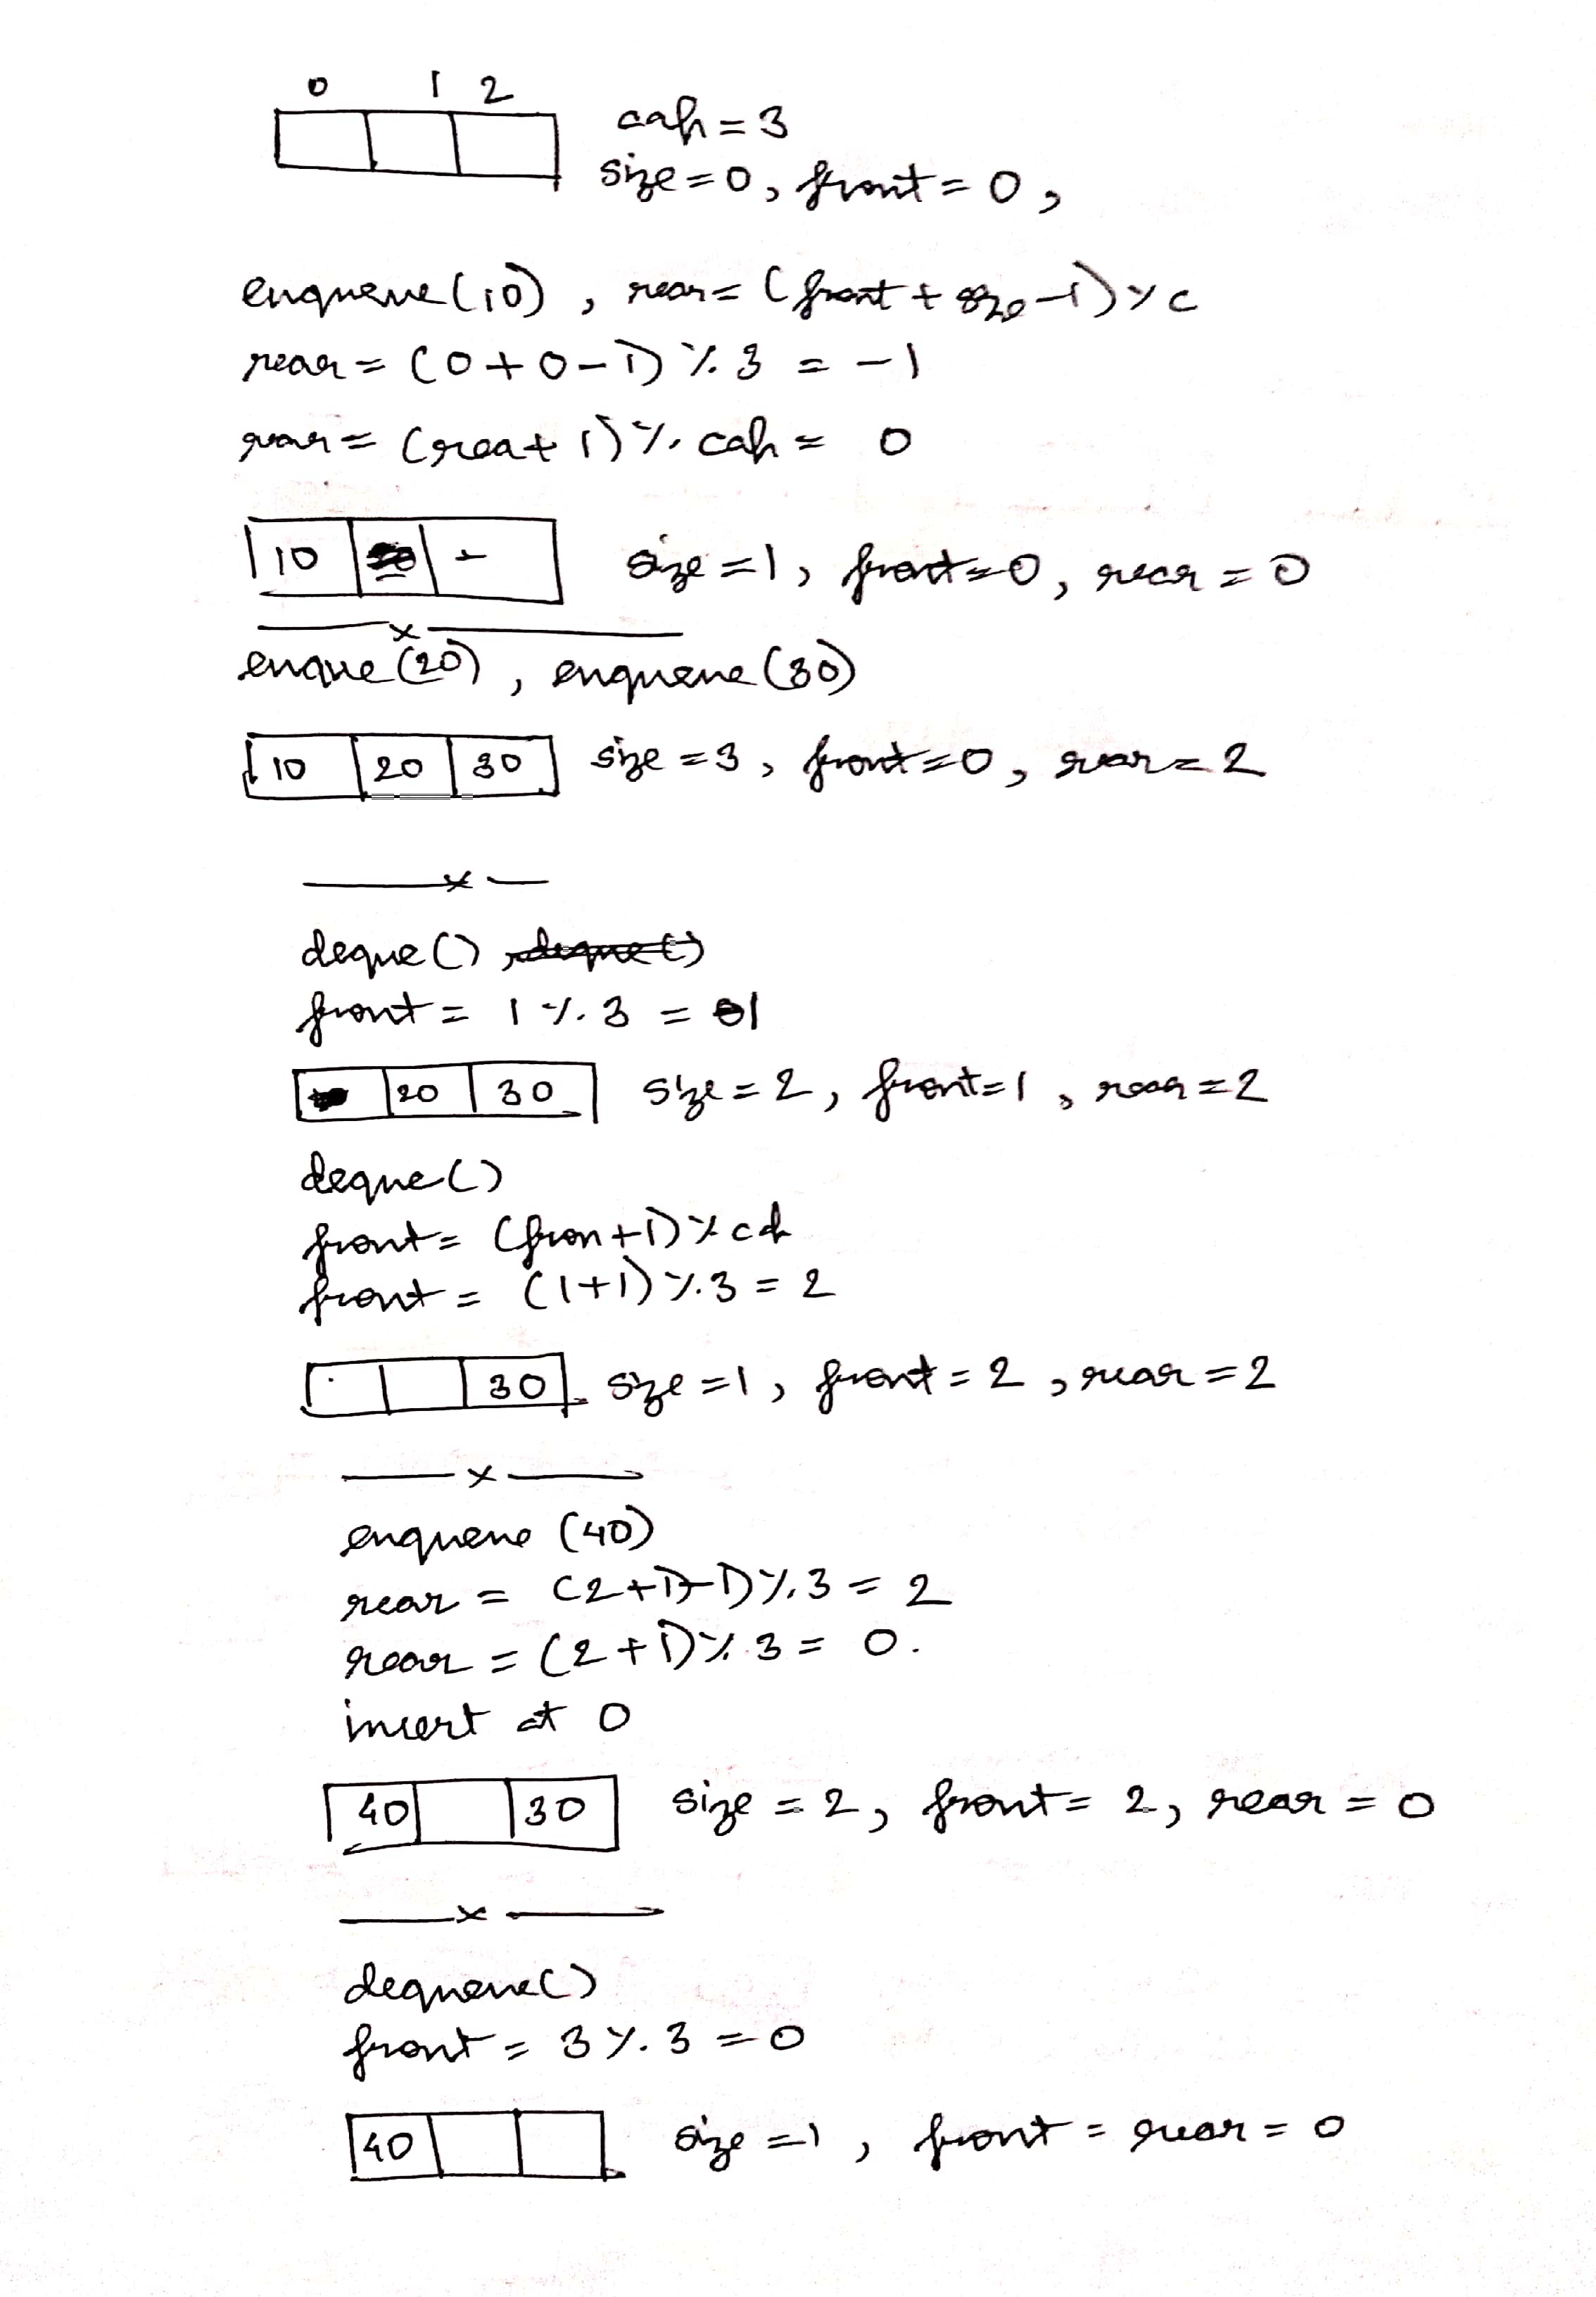 0 1 2
cap = 3
size = 0, front = 0,
enqueue(10), rear = (front + size - 1) % c
rear = (0 + 0 - 1) % 3 = -1
rear = (rea + 1) % cap = 0
10 - size = 1, front = 0, rear = 0
x
enque(20), enqueue(30)
10 20 30 size = 3, front = 0, rear = 2
x
deque() , deque()
front = 1 % 3 = 1
20 30 size = 2, front = 1, rear = 2
deque()
front = (fron + 1) % cap
front = (1+1) % 3 = 2
30 size = 1, front = 2, rear = 2
x
enqueue (40)
rear = (2+1-1) % 3 = 2
rear = (2+1) % 3 = 0.
insert at 0
40 30 size = 2, front = 2, rear = 0
x
dequeue()
front = 3 % 3 = 0
40 size = 1, front = rear = 0